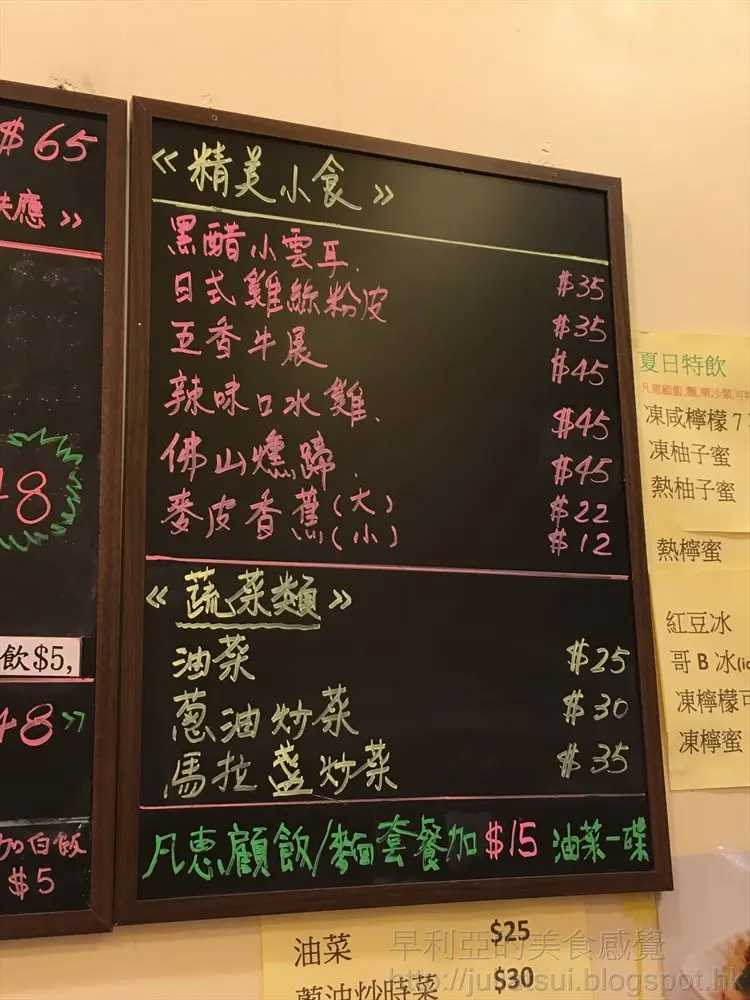 $65
應 »
48
飲$5,
48 »
加白飯
$5
« 精美小食 »
黑醋小雲耳 $35
日式雞絲粉皮 $35
五香牛展 $45
辣味口水雞 $45
佛山燻蹄 $45
麥皮香蕉(大) $22
(小) $12
« 蔬菜類 »
油菜 $25
蔥油炒菜 $30
馬拉盞炒菜 $35
凡惠顧飯/麵套餐加$15 油菜一碟
夏日特飲
凡惠顧飯,麵,喇沙類,可
凍咸檸檬7
凍柚子蜜
熱柚子蜜
熱檸蜜
紅豆冰
哥B冰
凍檸檬可
凍檸蜜
油菜 $25
蔥油炒時菜 $30
早利亞的美食感覺